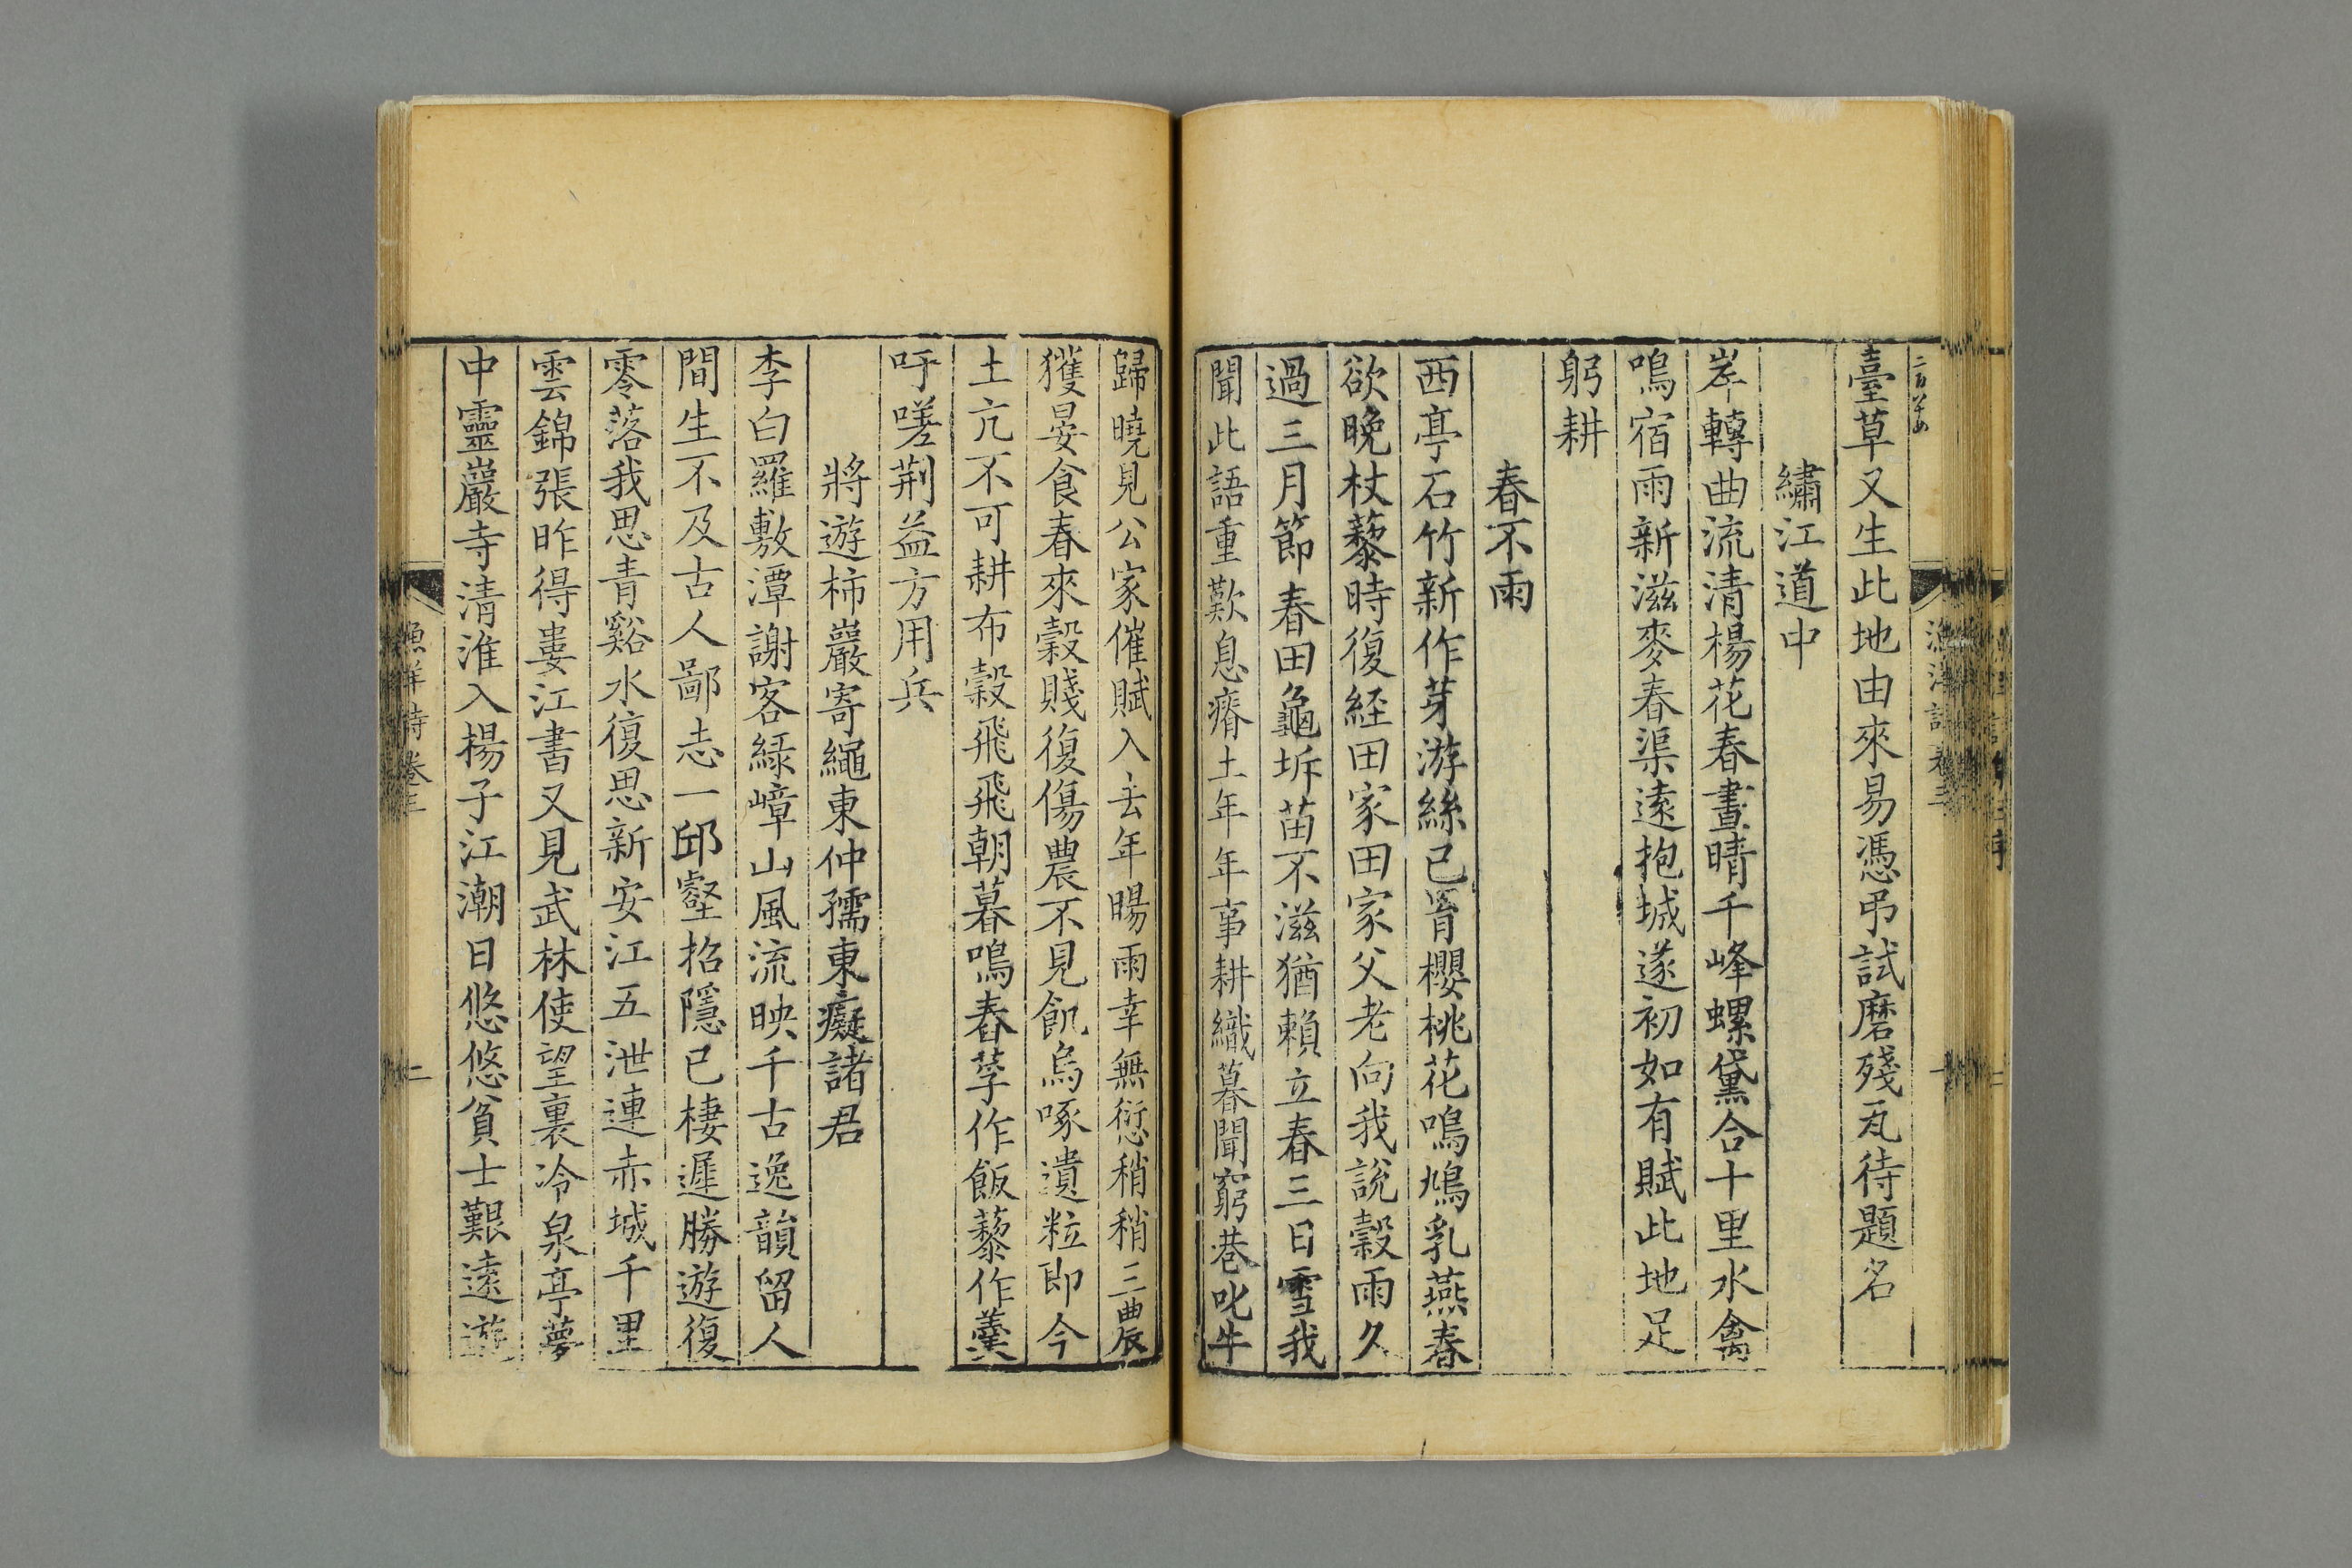 臺草又生此地由來易憑弔試磨殘瓦待題名
繡江道中
岸轉曲流清楊花春晝晴千峰螺黛合十里水禽
鳴宿雨新滋麥春渠遠抱城遂初如有賦此地足
躬耕
春不雨
西亭石竹新作芽游絲已罥櫻桃花鳴鳩乳燕春
欲晚杖藜時復經田家田家父老向我說穀雨久
過三月節春田龜坼苗不滋猶賴立春三日雪我
聞此語重歎息瘠土年年事耕織暮聞窮巷叱牛
歸曉見公家催賦入去年暘雨幸無愆稍稍三農
獲晏食春來穀賤復傷農不見飢烏啄遺粒即今
土亢不可耕布穀飛飛朝暮鳴舂莩作飯藜作羹
吁嗟荆益方用兵
將遊柿巖寄繩東仲孺東癡諸君
李白羅敷潭謝客綠嶂山風流映千古逸韻留人
間生不及古人鄙志一邱壑招隱已棲遲勝遊復
零落我思青谿水復思新安江五泄連赤城千里
雲錦張昨得婁江書又見武林使望裏冷泉亭夢
中靈巖寺清淮入楊子江潮日悠悠貧士艱遠遊
漁洋詩卷三
二